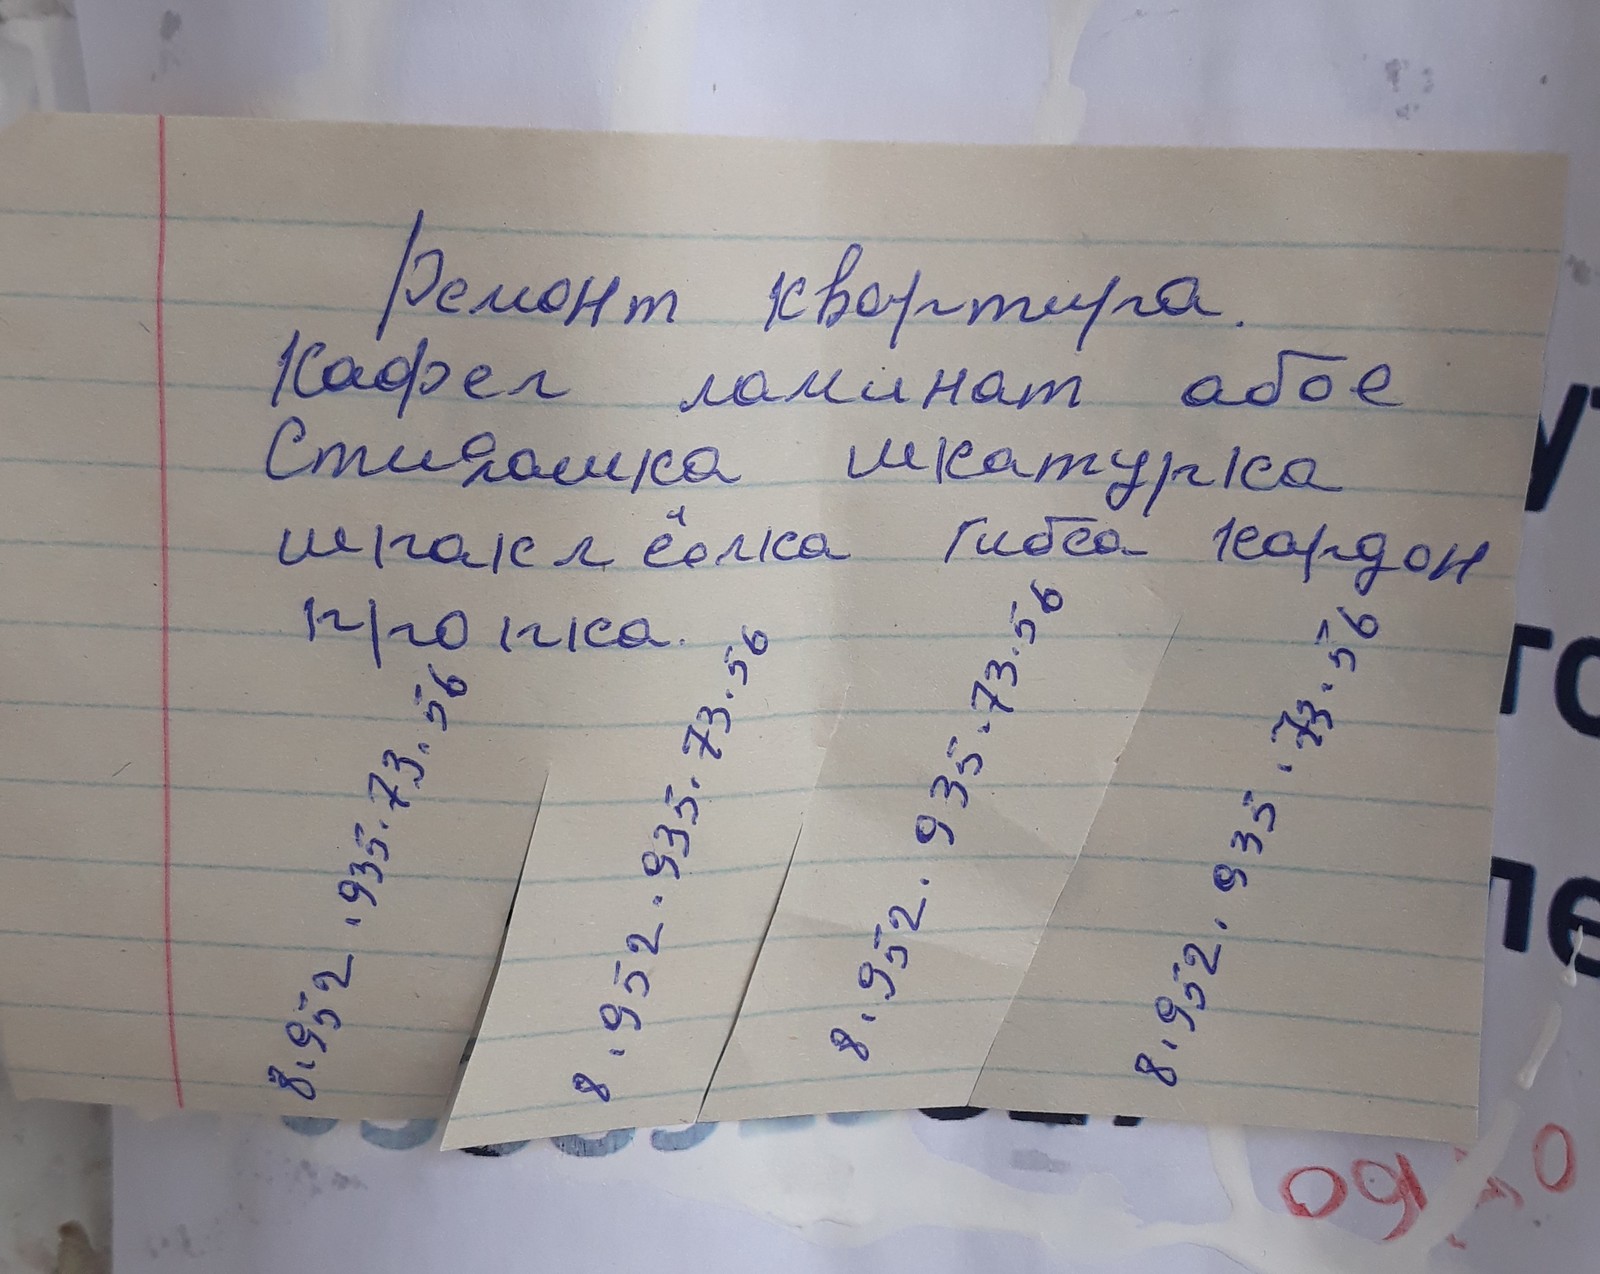 Ремонт квартира.
Кафел ламинат абое
Стидяшка шкатурка
шпаклёвлка Гибса кардон
пропка.
8.952.935.73.56
8.952.935.73.56
8.952.935.73.56
8.952.935.73.56